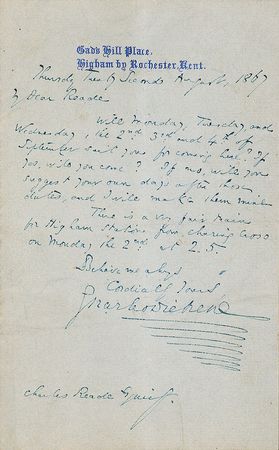 Gad's Hill Place,
Higham by Rochester, Kent.
Thursday Twenty Second August, 1867
My Dear Reade
Will Monday, Tuesday, and
Wednesday, the 2nd 3rd and 4th of
September suit you for coming here? If
yes, will you come? If no, will you
suggest your own days after those
dates, and I will make them mine
There is a very fair train
for Higham Station from Charing Cross
on Monday the 2nd at 2.5.
Believe me always
Cordially Yours
Charles Dickens
Charles Reade Esquire.